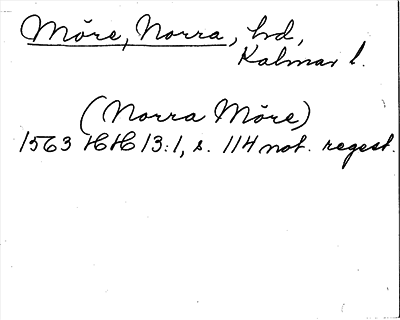 Möre, Norra, hd,
Kalmar l.
(Norra Möre)
1563 HH 13:1, s. 114 not. regest.